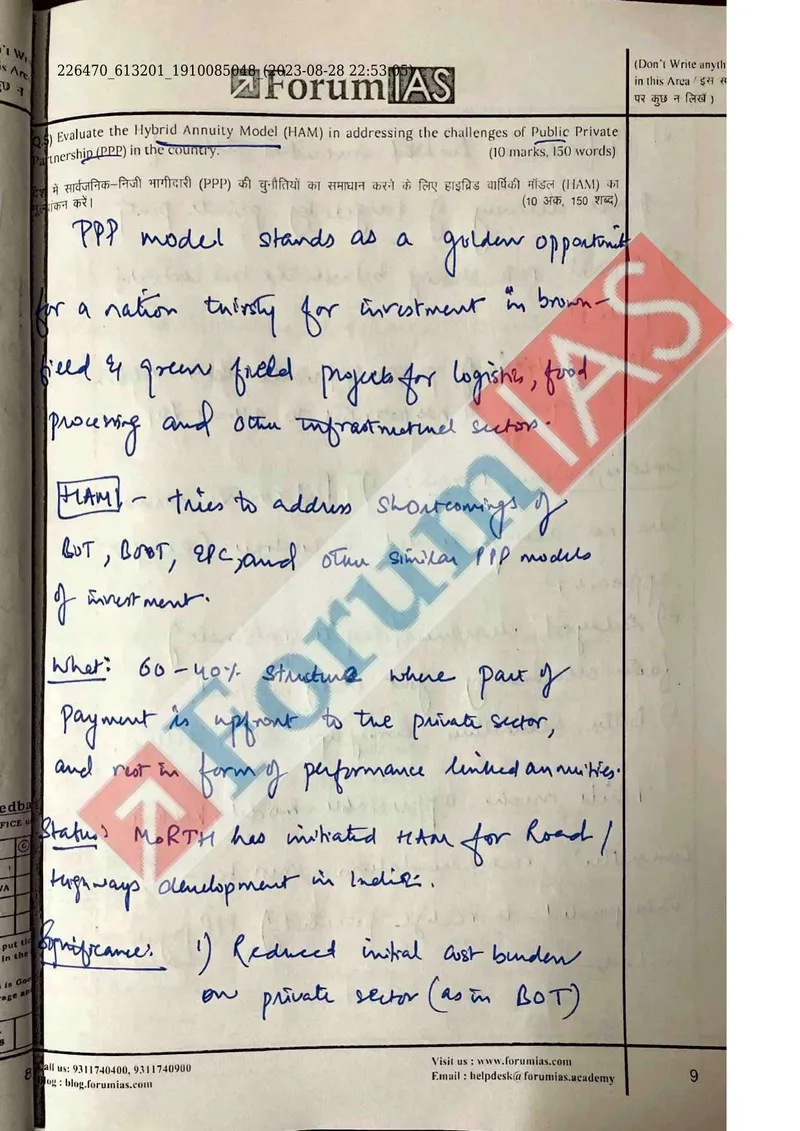 226470_613201_1910085048 (2023-08-28 22:53:05)
ForumIAS
(Don't Write anyth
in this Area / इस
पर कुछ न लिखें )
Evaluate the Hybrid Annuity Model (HAM) in addressing the challenges of Public Private
Partnership (PPP) in the country. (10 marks, 150 words)
में सार्वजनिक-निजी भागीदारी (PPP) की चुनौतियों का समाधान करने के लिए हाइब्रिड वार्षिकी मॉडल (HAM) का
करें। (10 अंक, 150 शब्द)
PPP model stands as a golden opportunit
for a nation thirsty for investment in brown-
field & green field projects for logistics, food
processing and other infrastructural sectors.
HAM - tries to address shortcomings of
BOT, BOOT, EPC, and other similar PPP models
of investment.
What: 60-40% structure where part of
payment is upfront to the private sector,
and rest in form of performance linked annuities.
Status: MoRTH has initiated HAM for Road/
Highways development in India.
Significance: 1) Reduced initial cost burden
on private sector (as in BOT)
ForumIAS
edba
FICE
VA
put ti
in the
is Goo
8
Call us: 9311740400, 9311740900
Blog : blog.forumias.com
Visit us : www.forumias.com
Email : helpdesk@forumias.academy
9